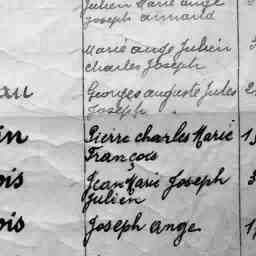 Julien Marie ange
Joseph armand
Marie ange Julien
charles Joseph
au Georges auguste Jules
Joseph.
in Pierre charles Marie
François
ois Jean Marie Joseph
Julien
ois Joseph ange